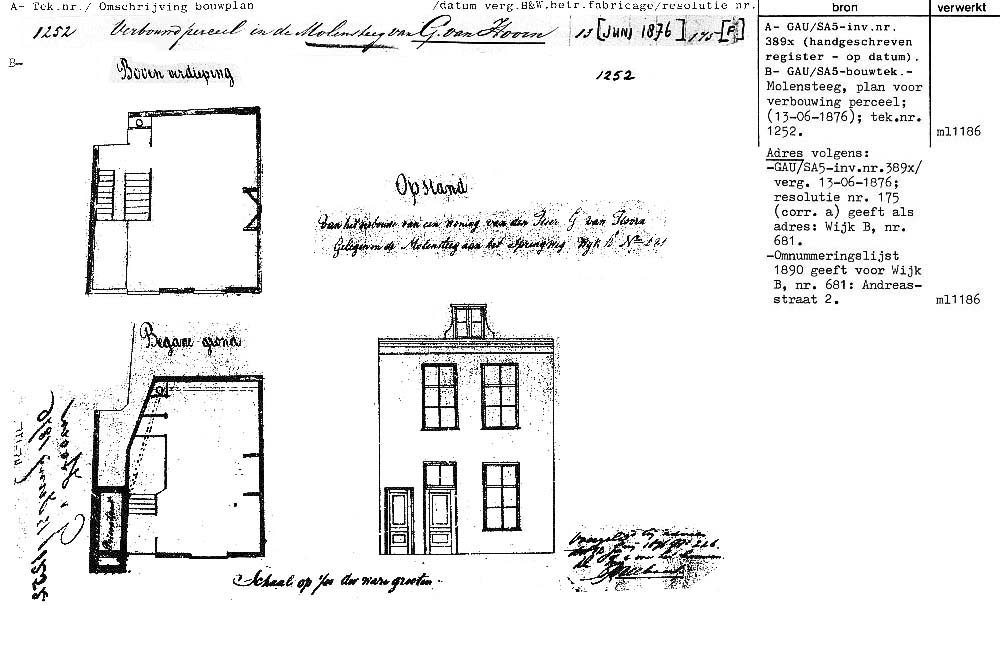 A- Tek.nr./ Omschrijving bouwplan /datum verg.B&W.betr.fabricage/resolutie nr.
bron
verwerkt
1252 Verbouw perceel in de Molensteeg van G. van Hoorn 13 [JUNI 1876] 175 [F]
B-
1252
Boven verdieping
Opstand
Van het verbouwen van een woning van den Heer G van Hoorn
Gelegen in de Molensteeg aan het Springweg Wijk B No
Begane grond
Schaal op der ware grootte
A- GAU/SA5-inv.nr.
389x (handgeschreven
register - op datum).
B- GAU/SA5-bouwtek.-
Molensteeg, plan voor
verbouwing perceel;
(13-06-1876); tek.nr.
1252.
ml1186
Adres volgens:
-GAU/SA5-inv.nr.389x/
verg. 13-06-1876;
resolutie nr. 175
(corr. a) geeft als
adres: Wijk B, nr.
681.
-Omnummeringslijst
1890 geeft voor Wijk
B, nr. 681: Andreas-
straat 2.
ml1186